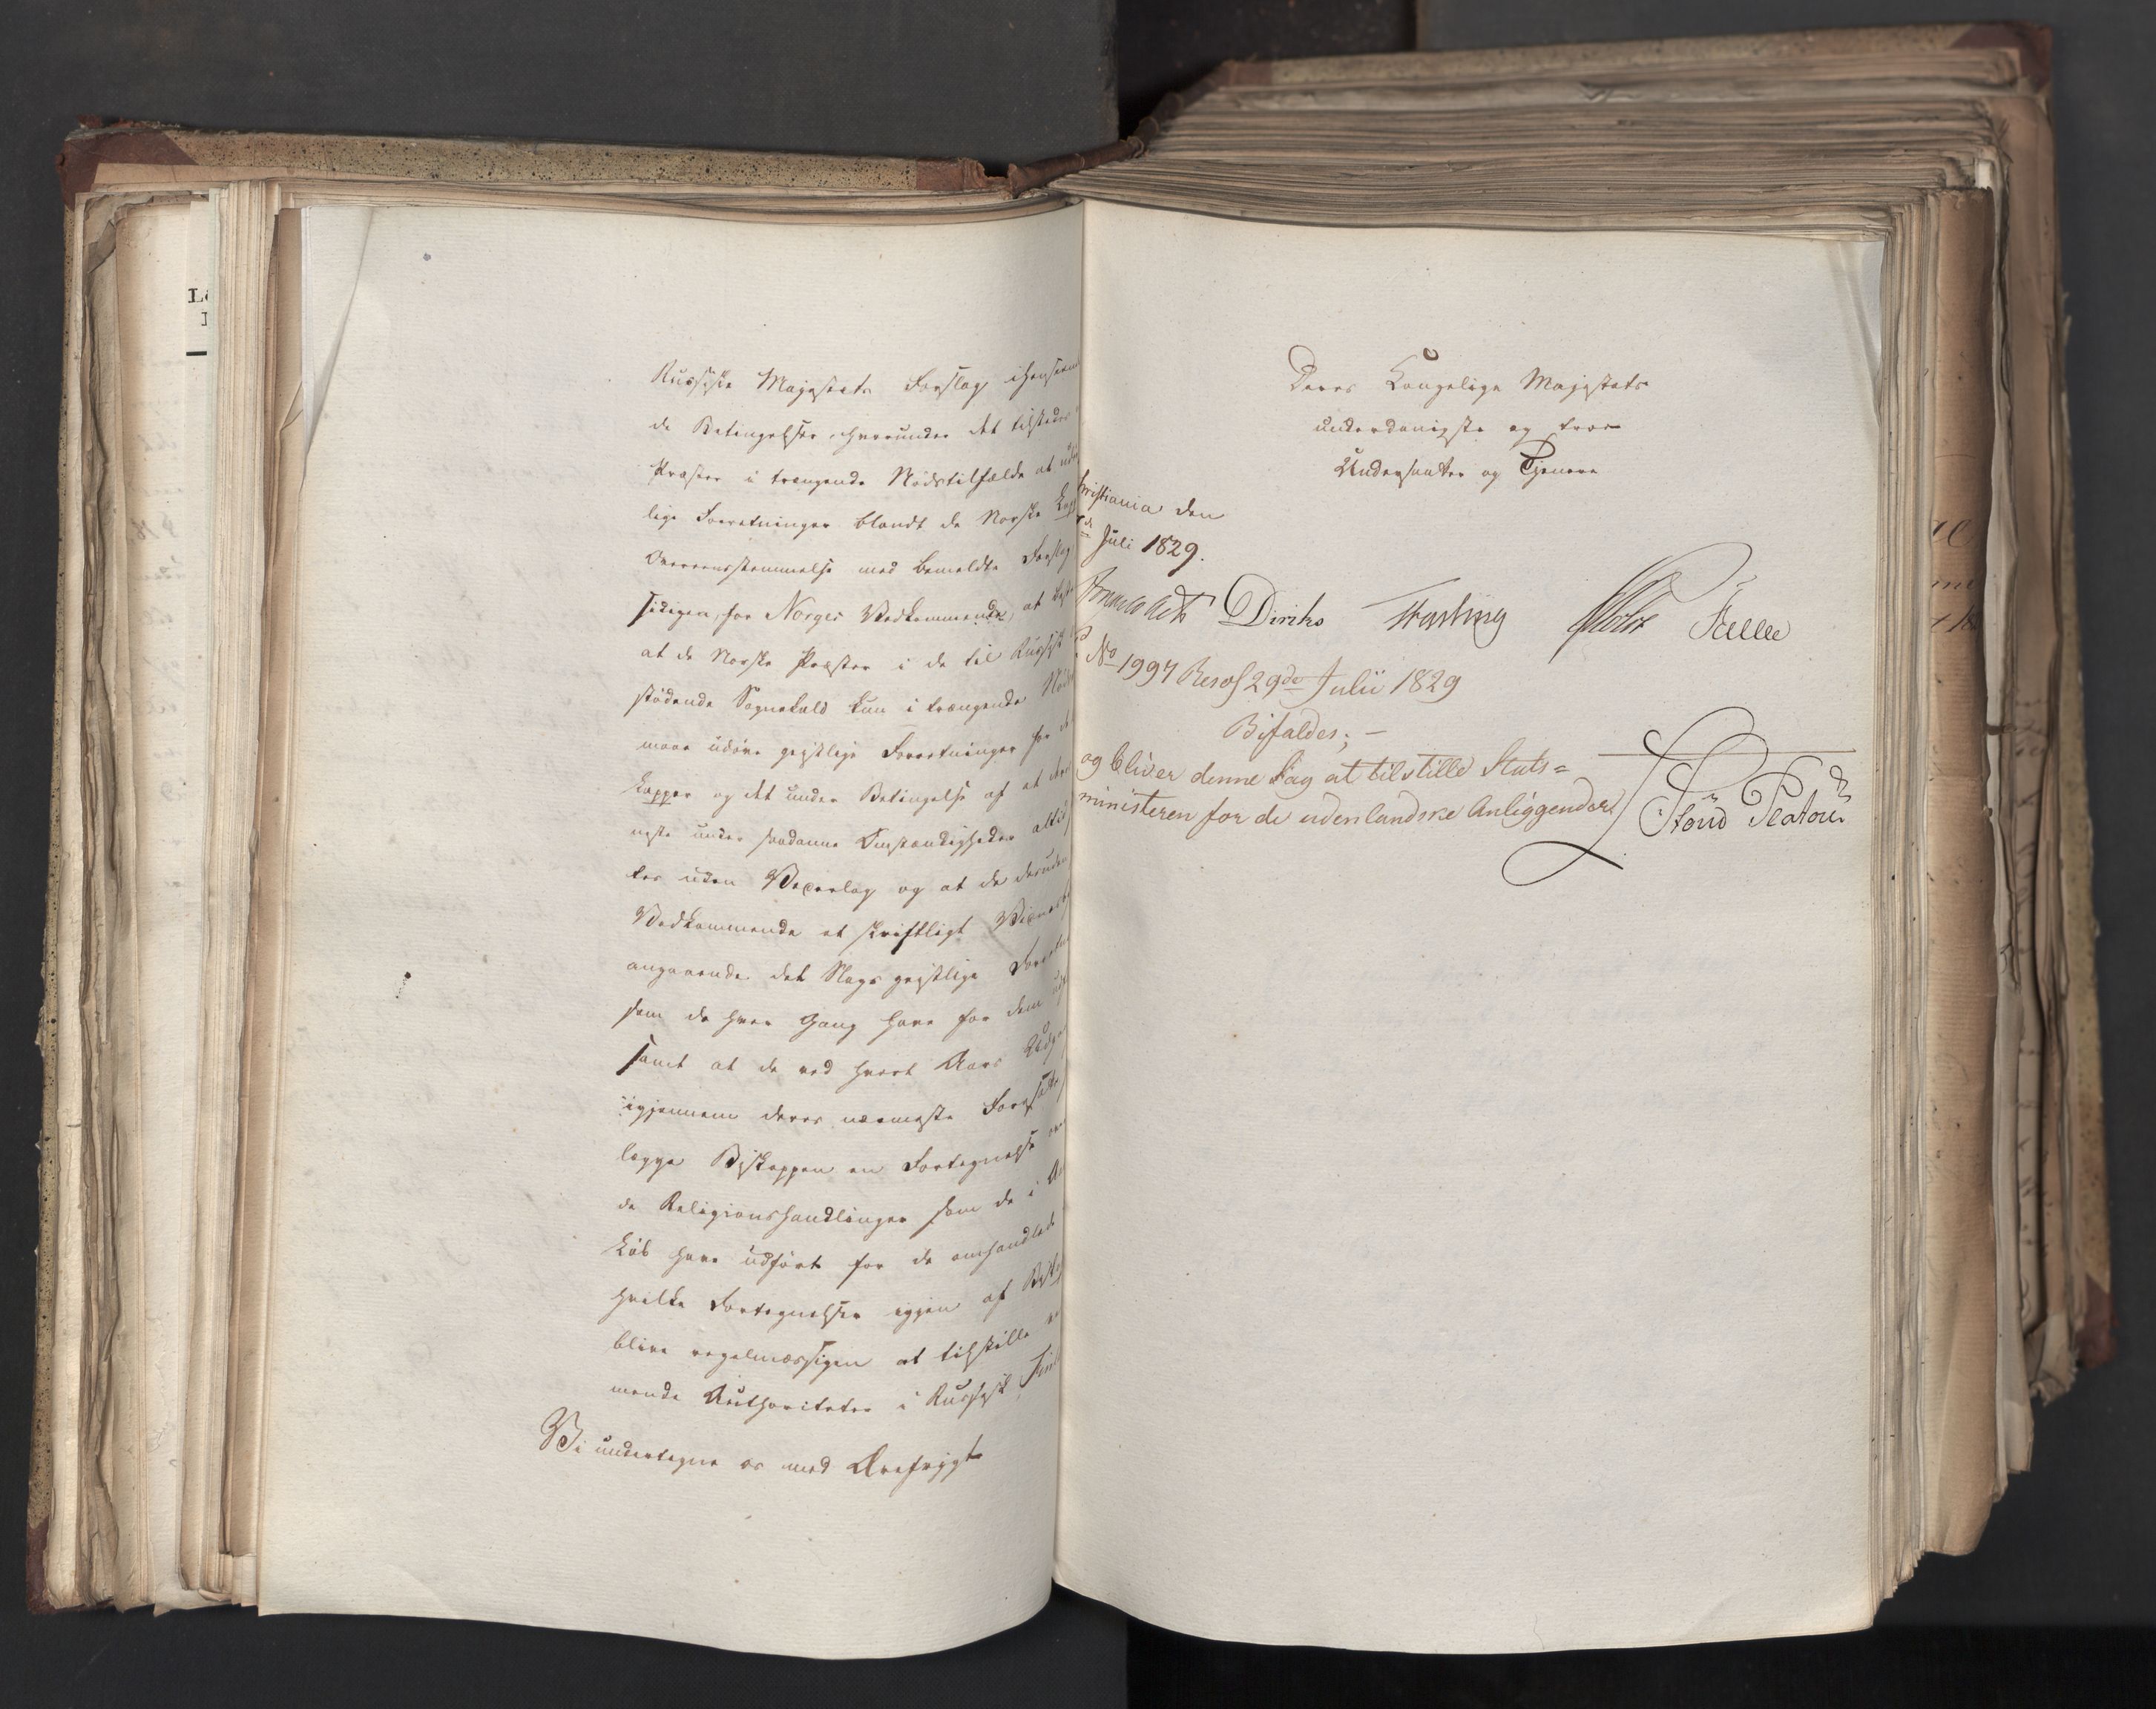 Russiske Majestæts Forslag ihenseen
de Betingelser, hvorunder det tilstedes
Præster i trængende Nödstilfælde at udö
lige Forretninger blandt de Norske Lapp
Overeensstemmelse med bemeldte Forslag
sidigen, for Norges Vedkommende, at
at de Norske Præster i de til Russisk
stödende Sognekald kun i trængende Nöds
maae udöve geistlige Forretninger for de
Lapper og det under Betingelse af at
under saadanne Omstændigheder altid
tes uden Vederlag og at de desuden
Vedkommende et skriftligt Vidnes
angaaende det Slags geistlige Forretni
som de hver Gang have for dem
samt at de ved hvert Aars Udga
igjennem deres nærmeste Foresatte
lægge Biskoppen en Fortegnelse over
de Religionshandlinger som de i Aa
Löb have udfört for de omhandlede
hvilke Fortegnelser igjen af
blive regelmæssigen at tilstille
mende Authoriteter i Russisk Finl
Vi undertegne os med Ærefrygt
L
I
Deres Kongelige Majestæts
underdanigste og troe
Undersaatter og Tjenere
hristiania den
Juli 1829.
Diriks
No 1997 Resol 29de Julii 1829
Bifaldes; —
og bliver denne Sag at tilstille Stats=
ministeren for de udenlandske Anliggender